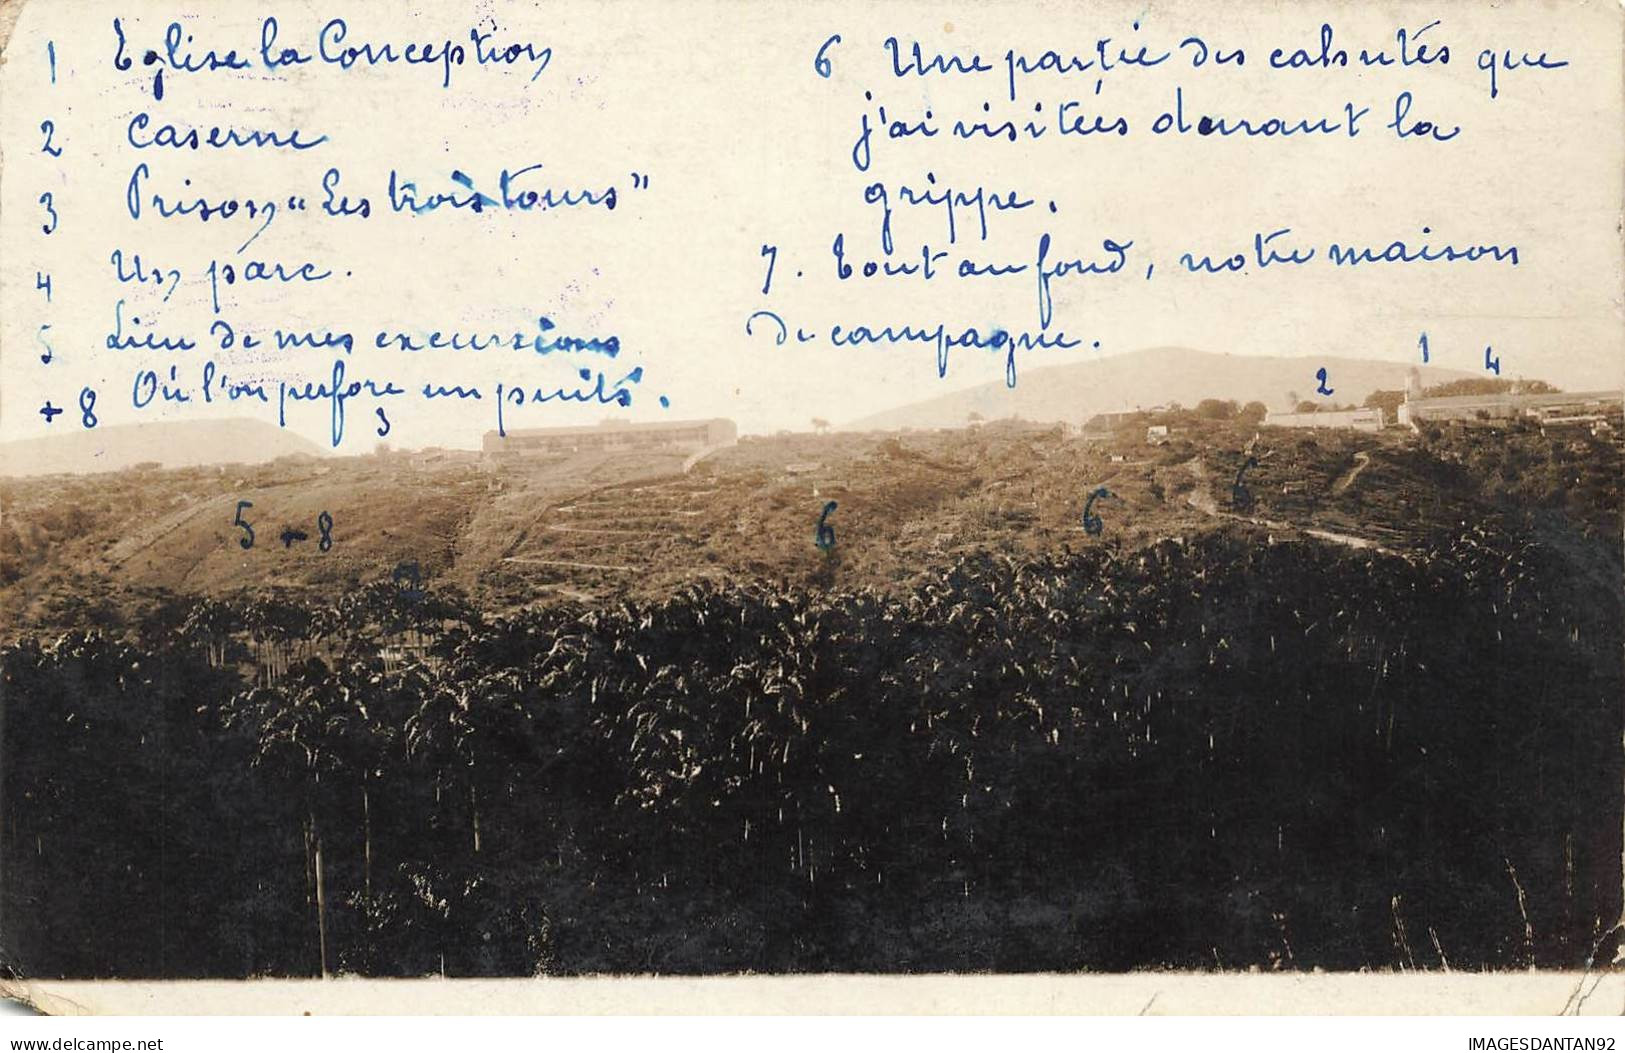 1 Eglise la Conception
2 Caserne
3 Prison "Les trois tours"
4 Un parc.
5 Lieu de mes excursions
+ 8 Où l'on perfore un puits.
6 Une partie des cahutes que
j'ai visitées durant la
grippe.
7. Tout au fond, notre maison
de campagne.
1
4
2
3
6
5 + 8
6
6
7
delcampe.net
IMAGESDANTAN92